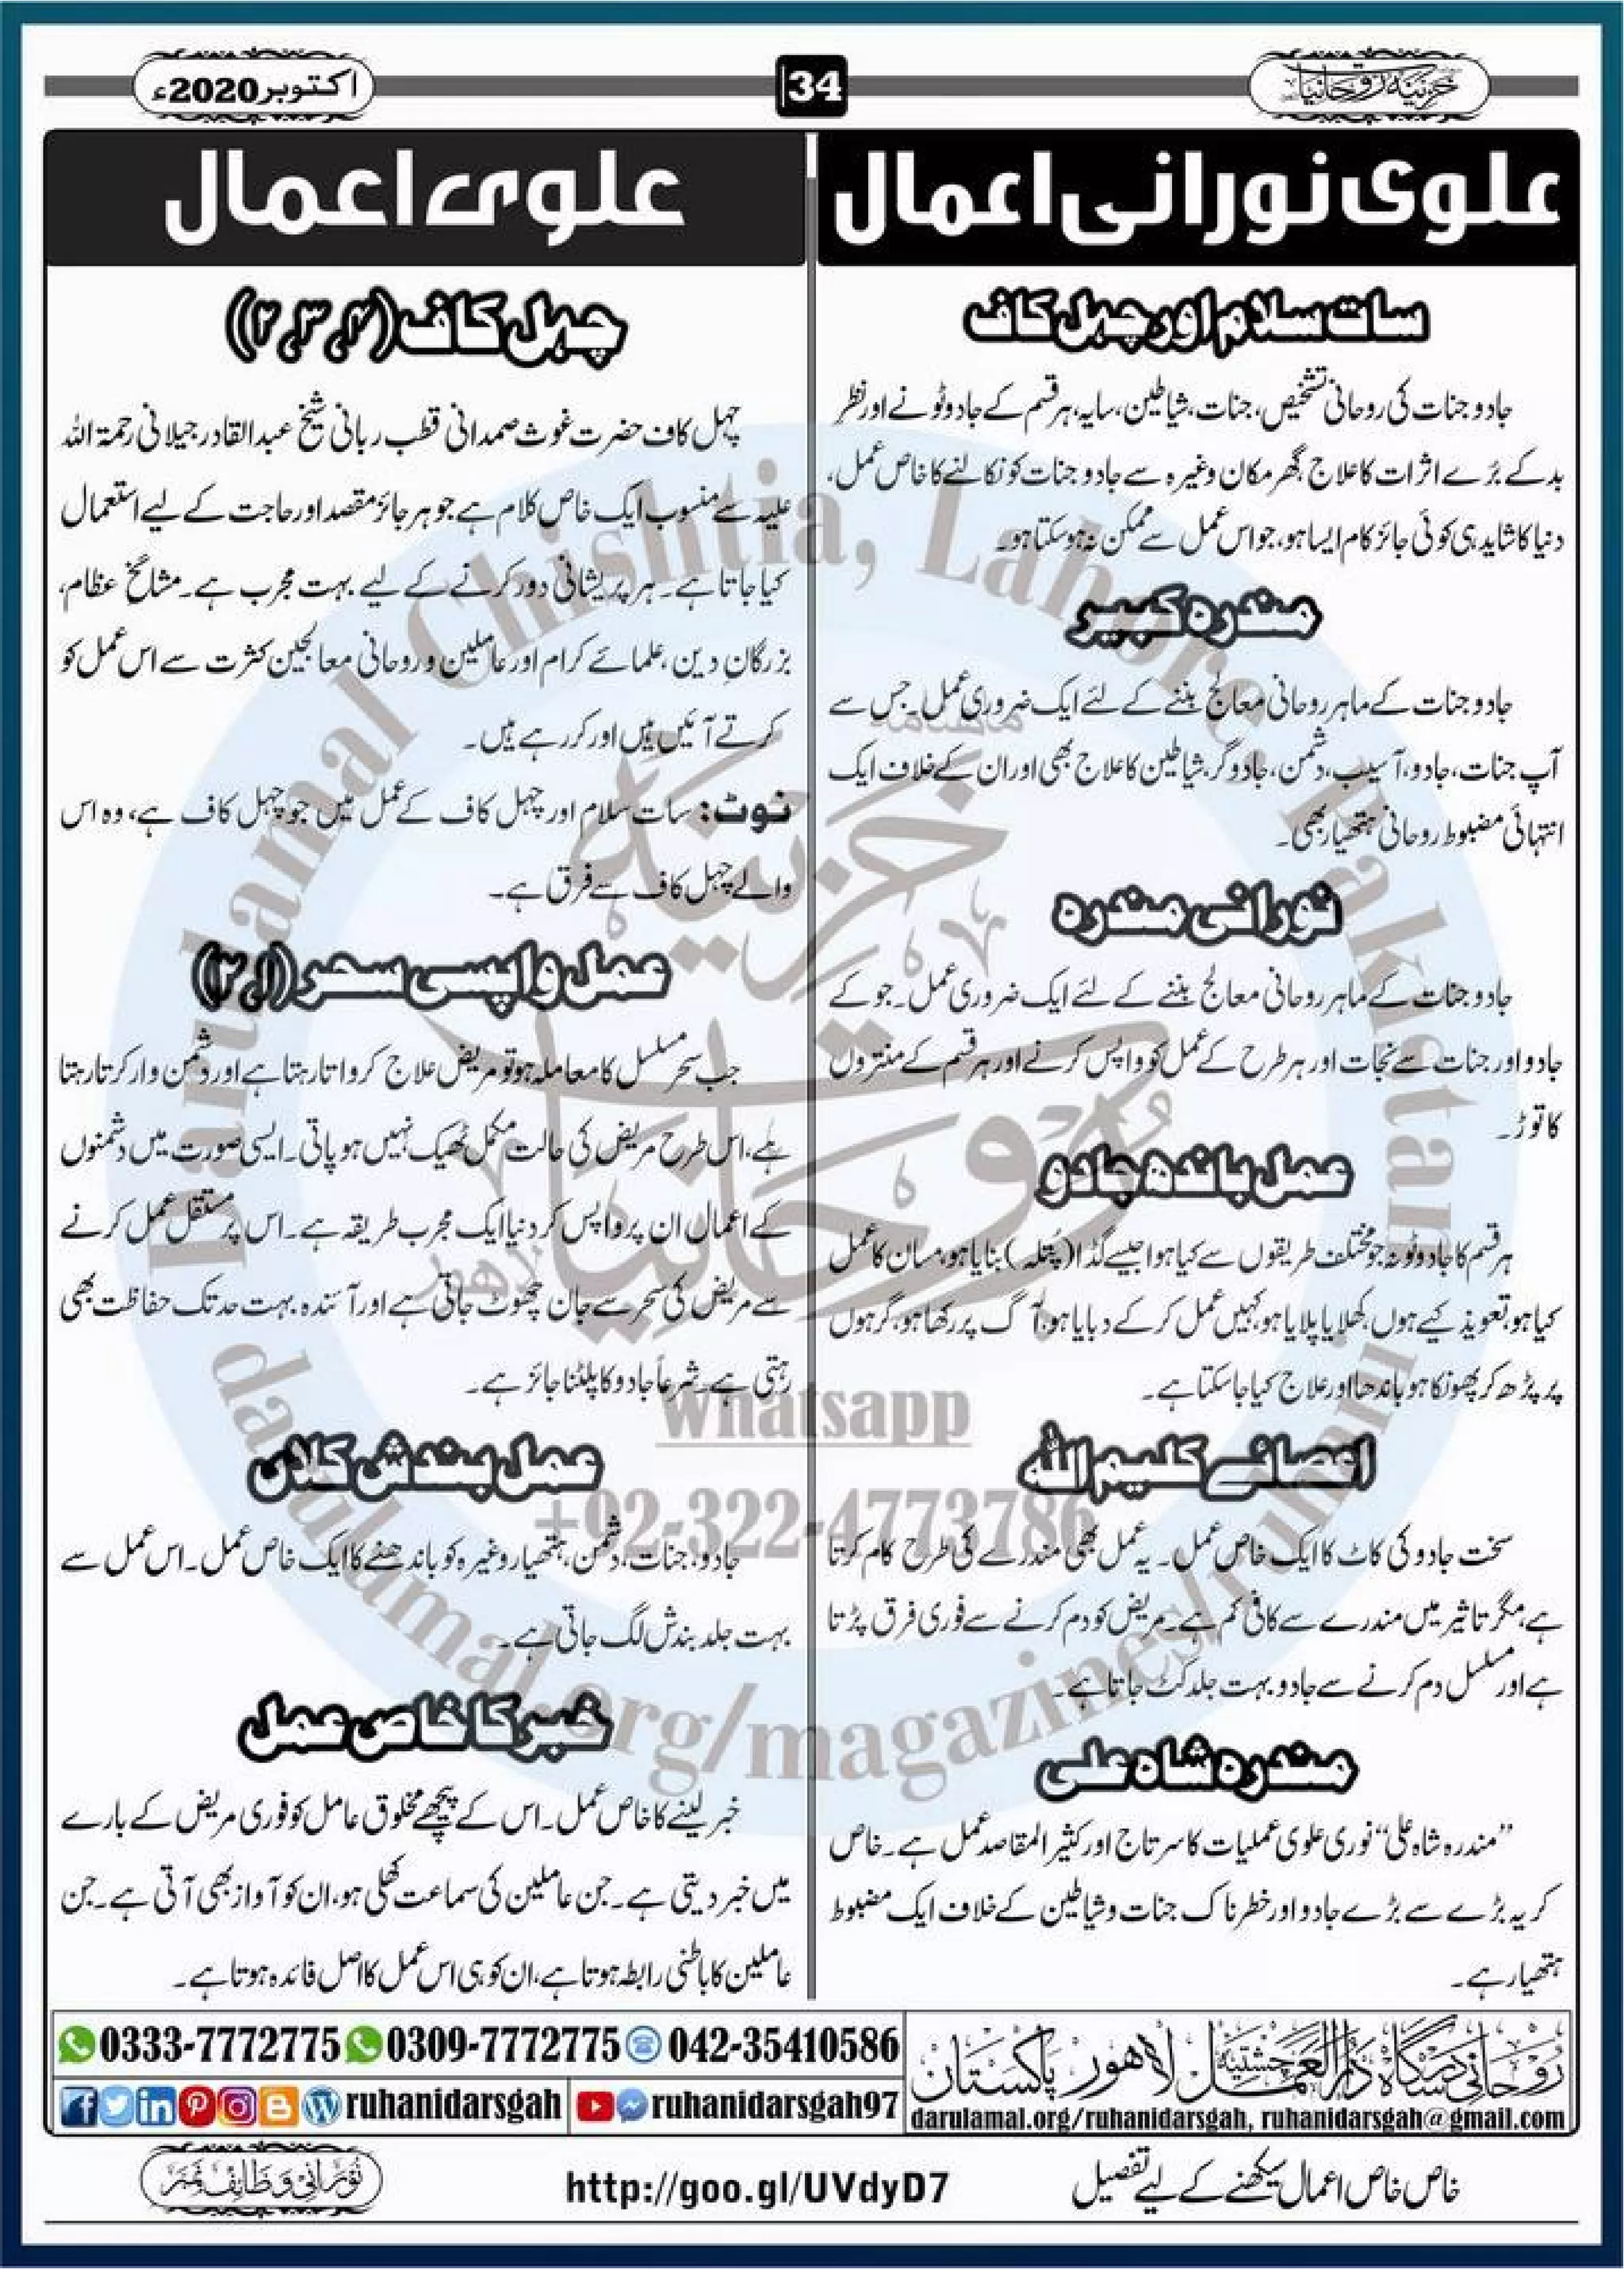 ماہنامہ خزینۂ روحانیات
34
اکتوبر2020ء
علوی نورانی اعمال
سات سلام اور چہل کاف
جادو جنات کی روحانی تشخیص، جنات، شیاطین، سایہ، ہر قسم کے جادو ٹونے اور نظرِ
بد کے بُرے اثرات کا علاج، گھر مکان وغیرہ سے جادو جنات کو نکالنے کا خاص عمل،
دنیا کا شاید ہی کوئی جائز کام ایسا ہو، جو اس عمل سے ممکن نہ ہو سکتا ہو۔
مندرہ کبیر
جادو جنات کے ماہر روحانی معالج بننے کے لئے ایک ضروری عمل۔ جس سے
آپ جنات، جادو، آسیب، دشمن، جادوگر، شیاطین کا علاج بھی اور ان کے خلاف ایک
انتہائی مضبوط روحانی ہتھیار بھی۔
نورانی مندرہ
جادو جنات کے ماہر روحانی معالج بننے کے لئے ایک ضروری عمل۔ جو کے
جادو اور جنات سے نجات اور ہر طرح کے عمل کو واپس کرنے اور ہر قسم کے منتروں
کا توڑ۔
عمل باندھ جادو
ہر قسم کا جادو ٹونہ جو مختلف طریقوں سے کیا ہوا جیسے گڈا (پُتلہ) بنایا ہو، مسان کا عمل
کیا ہو، تعویذ کیے ہوں، کھلایا پلایا ہو، کہیں عمل کر کے دبایا ہو، آگ پر رکھا ہو، گرہوں
پر پڑھ کر پھونکا ہو باندھا اور علاج کیا جا سکتا ہے۔
اعصائے کلیم اللہ
سخت جادو کی کاٹ کا ایک خاص عمل۔ یہ عمل بھی مندرے کی طرح کام کرتا
ہے، مگر تاثیر میں مندرے سے کافی کم ہے۔ مریض کو دم کرنے سے فوری فرق پڑتا
ہے اور مسلسل دم کرنے سے جادو بہت جلد کٹ جاتا ہے۔
مندرہ شاہ علی
”مندرہ شاہ علی“ نوری علوی عملیات کا سرتاج اور کثیر المقاصد عمل ہے۔ خاص
کر یہ بڑے سے بڑے جادو اور خطرناک جنات و شیاطین کے خلاف ایک مضبوط
ہتھیار ہے۔
علوی اعمال
چہل کاف (۴،۳،۲)
چہل کاف حضرت غوث صمدانی قطب ربانی شیخ عبدالقادر جیلانی رحمۃ اللہ
علیہ سے منسوب ایک خاص کلام ہے جو ہر جائز مقصد اور حاجت کے لیے استعمال
کیا جاتا ہے۔ ہر پریشانی دور کرنے کے لیے بہت مجرب ہے۔ مشائخ عظام،
بزرگانِ دین، علمائے کرام اور عاملین و روحانی معالجین کثرت سے اس عمل کو
کرتے آئیں ہیں اور کر رہے ہیں۔
نوٹ: سات سلام اور چہل کاف کے عمل میں جو چہل کاف ہے، وہ اس
والے چہل کاف سے فرق ہے۔
عمل واپسی سحر (۱،۳)
جب سحر مسلسل کا معاملہ ہو تو مریض علاج کرواتا رہتا ہے اور دشمن وار کرتا رہتا
ہے، اس طرح مریض کی حالت مکمل ٹھیک نہیں ہو پاتی۔ ایسی صورت میں دشمنوں
کے اعمال ان پر واپس کر دنیا ایک مجرب طریقہ ہے۔ اس پر مستقل عمل کرنے
سے مریض کی سحر سے جان چھوٹ جاتی ہے اور آئندہ بہت حد تک حفاظت بھی
رہتی ہے۔ شرعاً جادو کا پلٹنا جائز ہے۔
عمل بندش کلاں
جادو، جنات، دشمن، ہتھیار وغیرہ کو باندھنے کا ایک خاص عمل۔ اس عمل سے
بہت جلد بندش لگ جاتی ہے۔
خبر کا خاص عمل
خبر لینے کا خاص عمل۔ اس کے پیچھے مخلوق عامل کو فوری مریض کے بارے
میں خبر دیتی ہے۔ جن عاملین کی سماعت کھلی ہو، ان کو آواز بھی آتی ہے۔ جن
عاملین کا باطنی رابطہ ہوتا ہے، ان کو ہی اس عمل کا اصل فائدہ ہوتا ہے۔
Darulamal Chishtia, Lahore. Pakistan
darulamal.org/magazines/ruhaniyat
ماہنامہ
خزینۂ
روحانیات
لاہور
whatsapp
+92-322-4773786
روحانی درسگاہ دارالعمل چشتیہ لاہور پاکستان
darulamal.org/ruhanidarsgah, ruhanidarsgah@gmail.com
0333-7772775 0309-7772775 042-35410586
ruhanidarsgah ruhanidarsgah97
خاص خاص اعمال سیکھنے کے لیے تفصیل
http://goo.gl/UVdyD7
نورانی وظائف نمبر